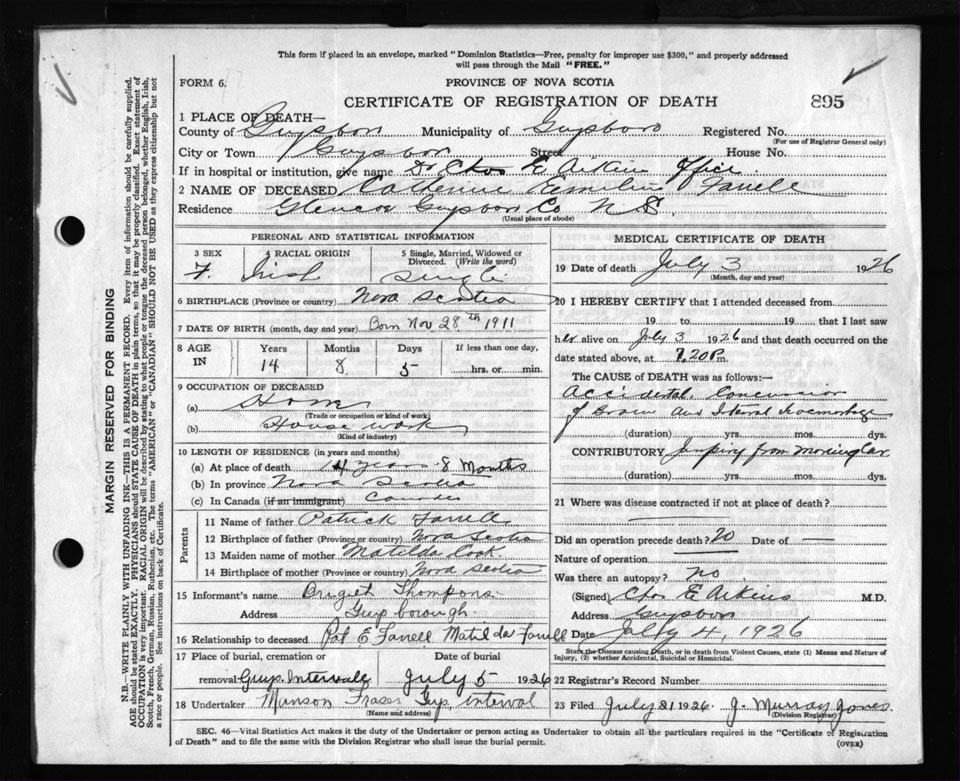 This form if placed in an envelope, marked "Dominion Statistics—Free, penalty for improper use $300," and properly addressed
will pass through the Mail "FREE."
FORM 6.
PROVINCE OF NOVA SCOTIA
CERTIFICATE OF REGISTRATION OF DEATH
895
1 PLACE OF DEATH—
County of Guysboro Municipality of Guysboro Registered No.
(For use of Registrar General only)
City or Town Guysboro Street House No.
If in hospital or institution, give name Dr Chas E Aikins Office
2 NAME OF DECEASED Catherine Farrell
Residence Glencoe Guysboro Co N.S.
(Usual place of abode)
PERSONAL AND STATISTICAL INFORMATION
3 SEX F. 4 RACIAL ORIGIN Irish 5 Single, Married, Widowed or Divorced. (Write the word) Single
6 BIRTHPLACE (Province or country) Nova Scotia
7 DATE OF BIRTH (month, day and year) Born Nov 28th 1911
8 AGE IN Years 14 Months 8 Days 5 If less than one day, hrs. or min.
9 OCCUPATION OF DECEASED
(a) Home
(Trade or occupation or kind of work)
(b) House work
(Kind of industry)
10 LENGTH OF RESIDENCE (in years and months)
(a) At place of death 14 years 8 Months
(b) In province Nova Scotia
(c) In Canada (if an immigrant)
Parents
11 Name of father Patrick Farrell
12 Birthplace of father (Province or country) Nova Scotia
13 Maiden name of mother Matilda Cook
14 Birthplace of mother (Province or country) Nova Scotia
15 Informant's name
Address Guysborough
16 Relationship to deceased Pat E Farrell Matilda Farrell
17 Place of burial, cremation or removal Guys. Intervale Date of burial July 5 1926
18 Undertaker Manson Fraser Guys Interval
(Name and address)
MEDICAL CERTIFICATE OF DEATH
19 Date of death July 3 1926
(Month, day and year)
20 I HEREBY CERTIFY that I attended deceased from
19 to 19 that I last saw
her alive on July 3 1926 and that death occurred on the
date stated above, at
The CAUSE OF DEATH was as follows:—
Accidental Concussion
of Brain and Internal Haemorrhage
(duration) yrs. mos. dys.
CONTRIBUTORY Jumping from Moving Car
(duration) yrs. mos. dys.
21 Where was disease contracted if not at place of death?
Did an operation precede death? No Date of —
Nature of operation
Was there an autopsy? no
(Signed) Chas E Aikins M.D.
Address Guysboro
Date July 4, 1926
State the Disease causing Death, or in death from Violent Causes, state (1) Means and Nature of
Injury, (2) whether Accidental, Suicidal or Homicidal.
22 Registrar's Record Number
23 Filed July 21 1926 J. Murray Jones
(Division Registrar)
SEC. 46—Vital Statistics Act makes it the duty of the Undertaker or person acting as Undertaker to obtain all the particulars required in the "Certificate of Registration
of Death" and to file the same with the Division Registrar who shall issue the burial permit.
(OVER)
MARGIN RESERVED FOR BINDING
N.B.—WRITE PLAINLY WITH UNFADING INK—THIS IS A PERMANENT RECORD. Every item of information should be carefully supplied.
AGE should be stated EXACTLY. PHYSICIANS should STATE CAUSE OF DEATH in plain terms, so that it may be properly classified. Exact statement of
OCCUPATION is very important. RACIAL ORIGIN will be described by stating to what people or tongue the deceased person belonged, whether English, Irish,
Scotch, French, German, Russian, Ruthenian, etc. The terms "AMERICAN" or "CANADIAN" SHOULD NOT BE USED as they express citizenship but not
a race or people. See instructions on back of Certificate.